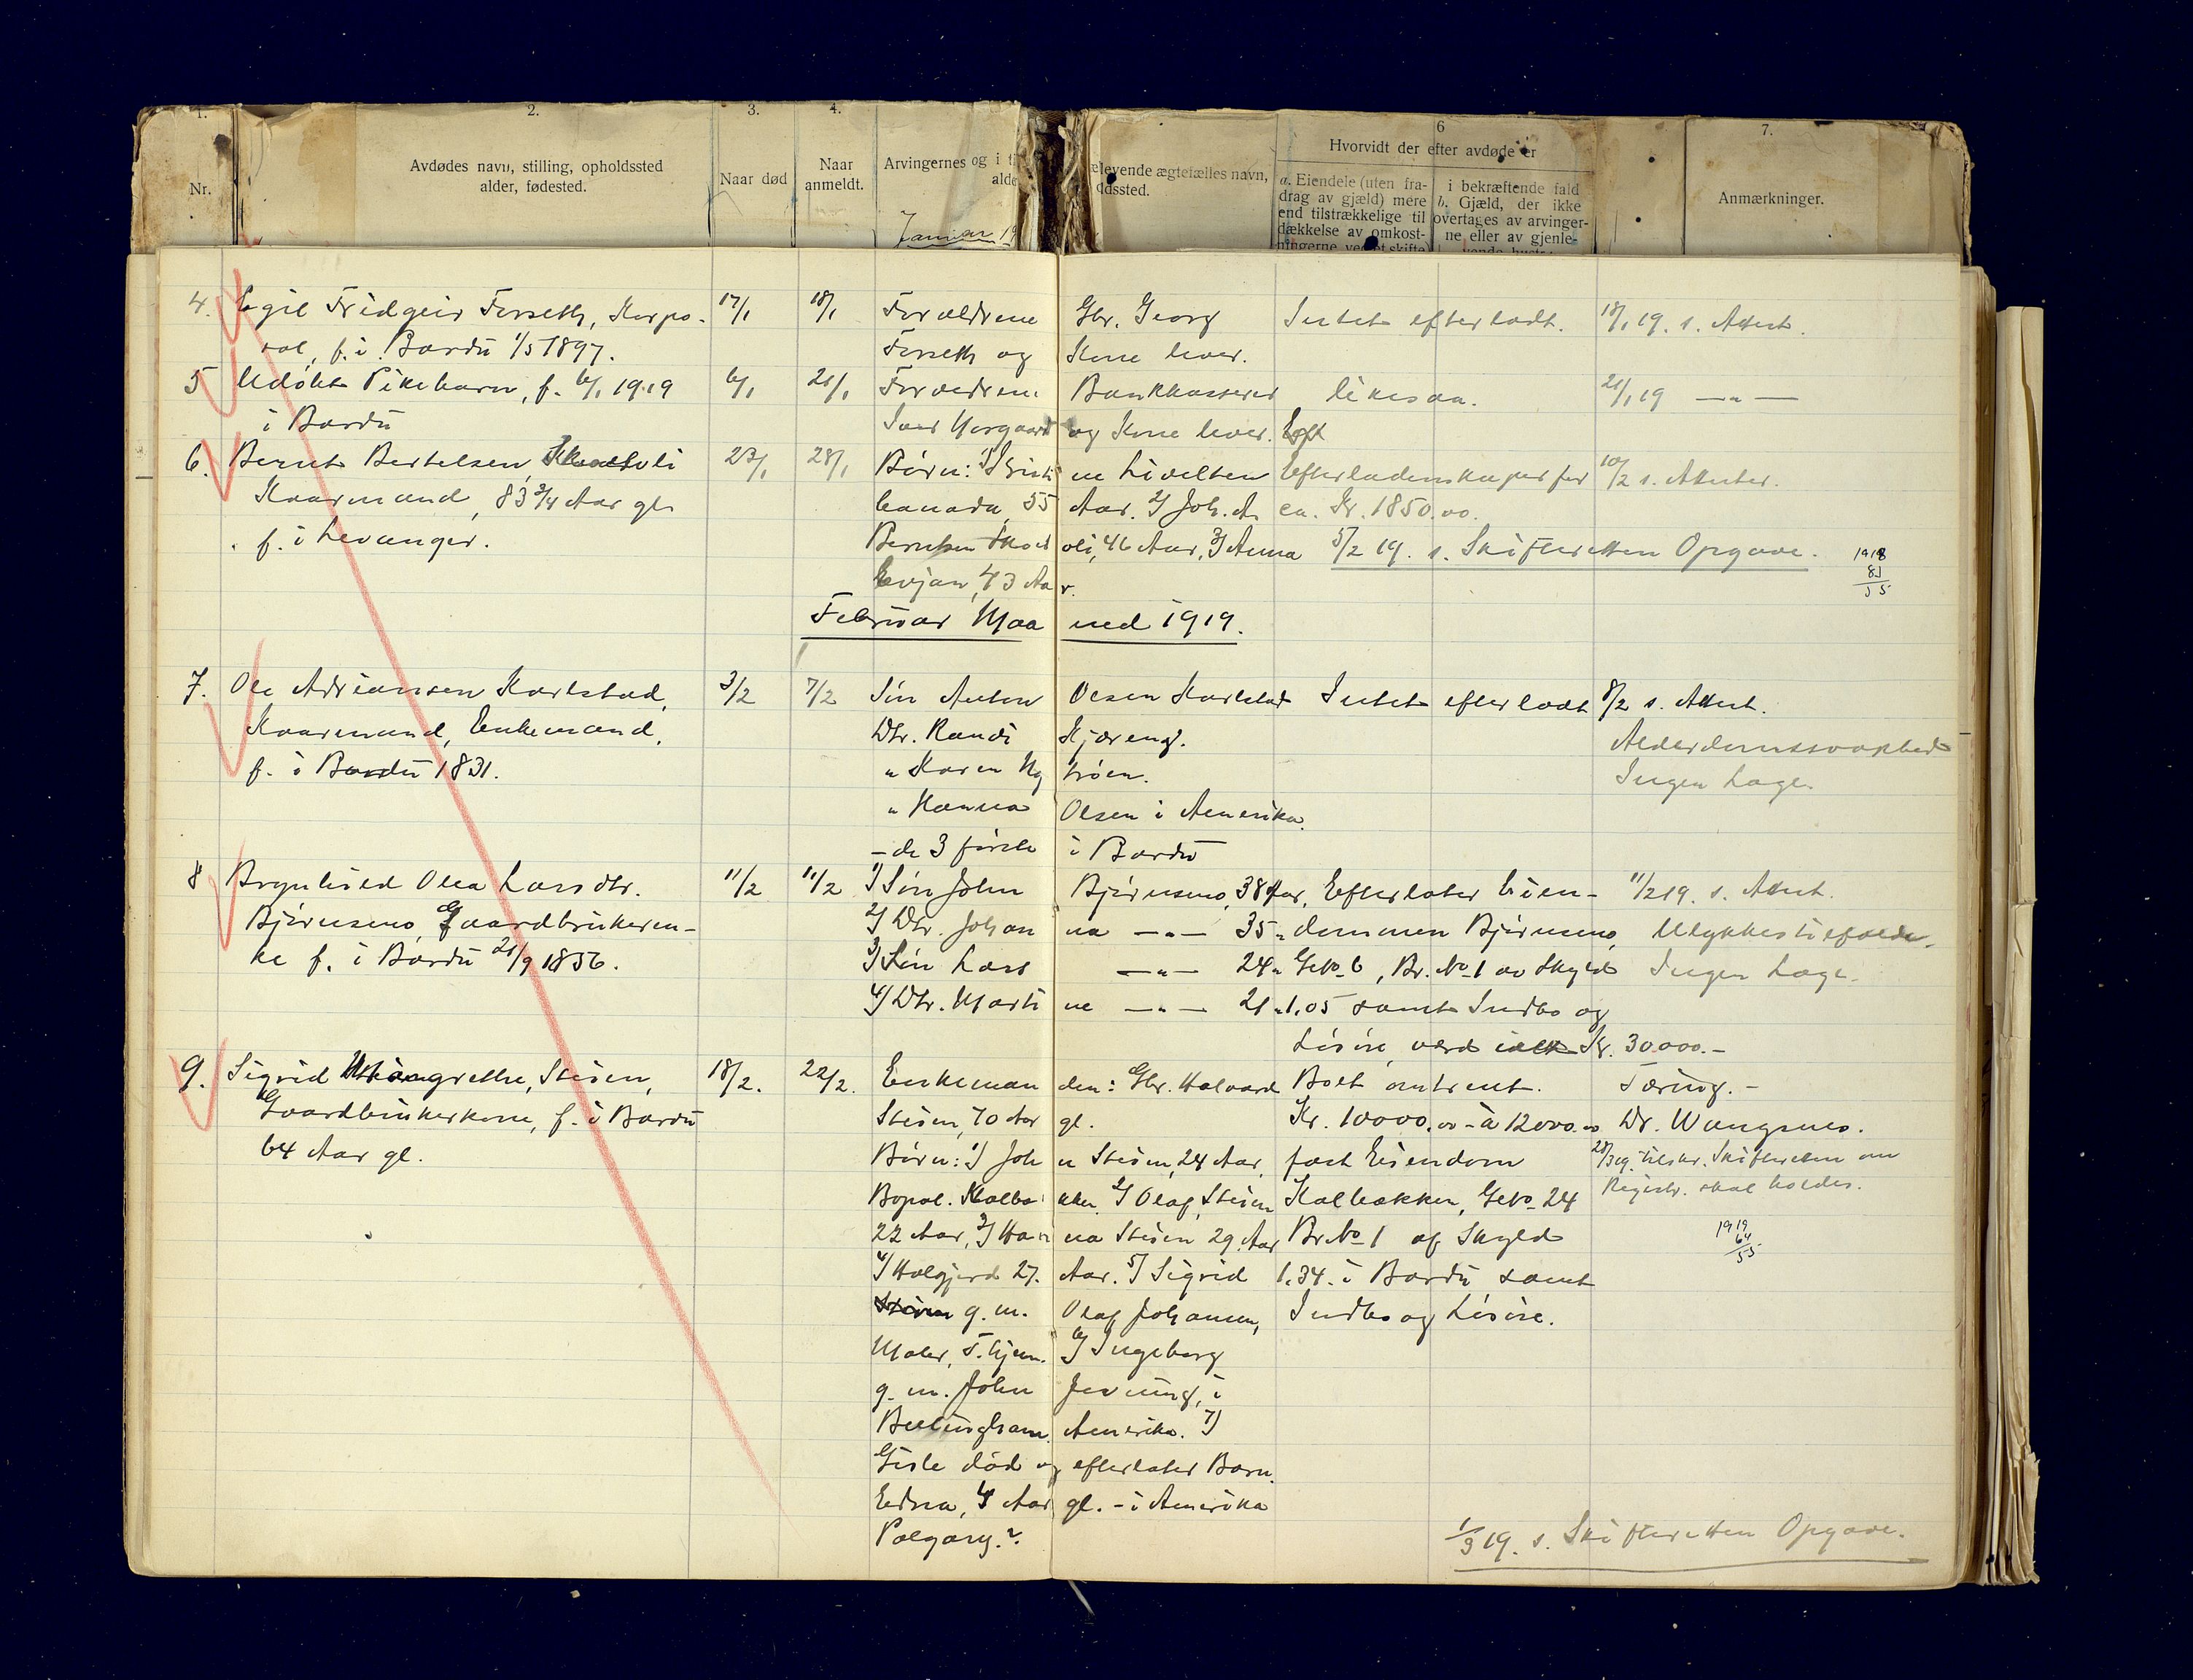 1. 2. 3. 4. 6 7.
Nr.
Avdødes navn, stilling, opholdssted
alder, fødested.
Naar død
Naar
anmeldt.
Arvingernes og i
alde
levende ægtefælles navn,
dssted.
Hvorvidt der efter avdøde er
a. Eiendele (uten fra-
drag av gjæld) mere
end tilstrækkelige til
dækkelse av omkost-
ningerne ved et skifte
i bekræftende fald
b. Gjæld, der ikke
overtages av arvinger-
ne eller av gjenle-
Anmærkninger.
Januar 19
4. Egil Fridgeir Forseth, Korpo- 17/1 18/1 Forældrene Gbr. Georg Intet efterladt. 18/1 19. s. Attest.
ral, f. i Bardu 1/5 1897. Forseth og Kone lever.
5 Udøbt Pikebarn, f. 6/1 1919 6/1 21/1 Forældrene Bankkasserer likesaa. 21/1 19 —"—
i Bardu og Kone lever.
6. Bernt Bertelsen 23/1 28/1 Børn: 1) ne Livelten Efterladenskaper for 10/2 s. Attester.
Kaarmand, 83 3/4 Aar gl. Canada, 55 Aar. 2) Joh. A. ca. Kr. 1850.00.
f. i Levanger. Berntsen 46 Aar, 3) Anna 5/2 19. s. Skifteretten Opgave. 1918
83
Evjan, 43 Aar.
Februar Maaned 1919.
7. Ole Adriansen Karlstad, 3/2 7/2 Søn Anton Olsen Karlstad Intet efterladt 8/2 s. Attest.
Kaarmand, Enkemand, Dtr. Randi Kjæreng. Alderdomssvakhed
f. i Bardu 1831. " Karen Nytrøen. Ingen Læge.
" Hanna Olsen i Amerika.
- de 3 første i Bardu
8 Brynhild Olea Larsdtr. 11/2 11/2 1) Søn John Bjørnsmo, 38 Aar, Efterlater Eien- 11/2 19. s. Attest.
Bjørnsmo, Gaardbrukeren- 2) Dtr. Johanna —"— 35 " dommen Bjørnsmo, Ulykkestilfælde.
ke f. i Bardu 21/9 1856. 3) Søn Lars —"— 24 " G.No. 6, Br. No 1 av Skyld Ingen Læge.
4) Dtr. Martine —"— 21 " 1.05 samt Indbo og
Løsøre, værd Kr. 30000.-
9. Sigrid Stien, 18/2. 22/2. Enkemanden: Gbr. Halvard Boet omtrent. Tæring.-
Gaardbrukerkone, f. i Bardu Stien, 70 Aar gl. Kr. 10000.00 - à 12000.00 Dr. Wangsnes.
64 Aar gl. Børn: 1) John Stien, 24 Aar, fast Eiendom 28/3 19. tilskr. Skifteretten om
Bopæl. Kalbækken. 2) Olaf Stien Kalbækken, G.No. 24 Registr. skal holdes.
22 Aar, 3) Hanna Stien 29 Aar Br.No 1 af Skyld 1919
64
55
4) Halgjerd 27. Aar. 5) Sigrid 1.34. i Bardu samt
g. m. Olaf Johansen, Indbo og Løsøre.
Maler, 6) Ingeborg
g. m. John i
Bellingham. Amerika. 7)
Gisle død og efterlater Barn.
Edna, 4 Aar gl. - i Amerika
1/3 19. s. Skifteretten Opgave.